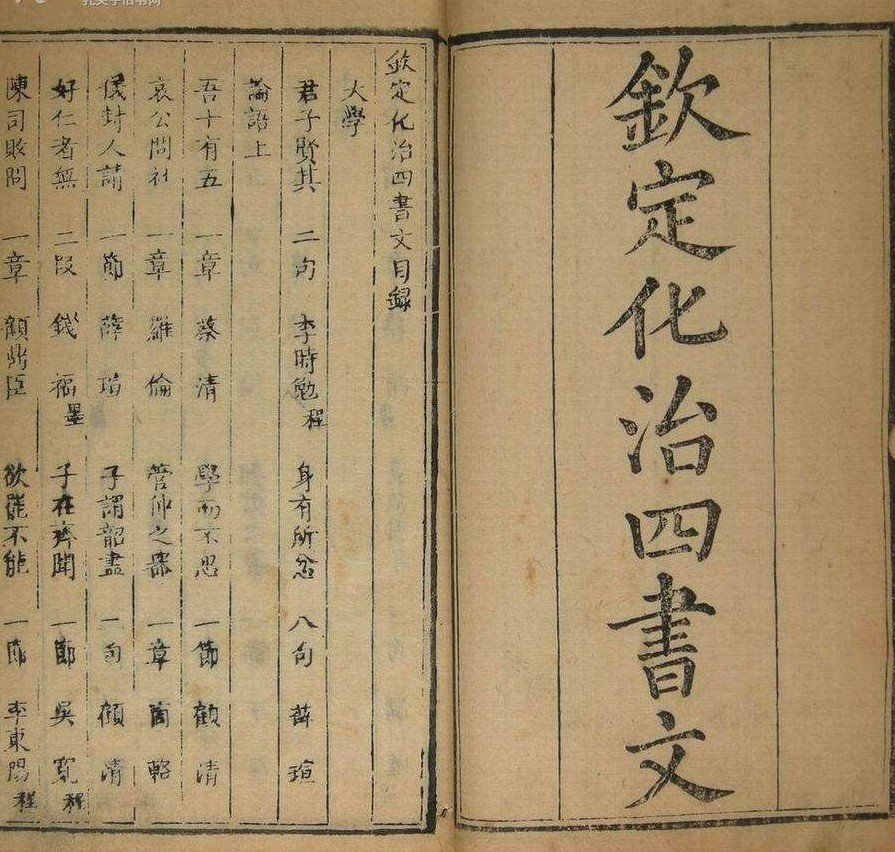 欽定化治四書文
欽定化治四書文目錄
大學
君子賢其 二句 李時勉 程 身有所忿 八句 薛瑄
論語上
吾十有五 一章 蔡清 學而不思 一節 顧清
哀公問社 一章 羅倫 管仲之器 一章 商輅
儀封人請 一節 薛瑄 子謂韶盡 二句 顧清
好仁者無 二段 錢福 墨 子在齊聞 一節 吳寬 程
陳司敗問 一章 顧鼎臣 欲罷不能 一節 李東陽 程